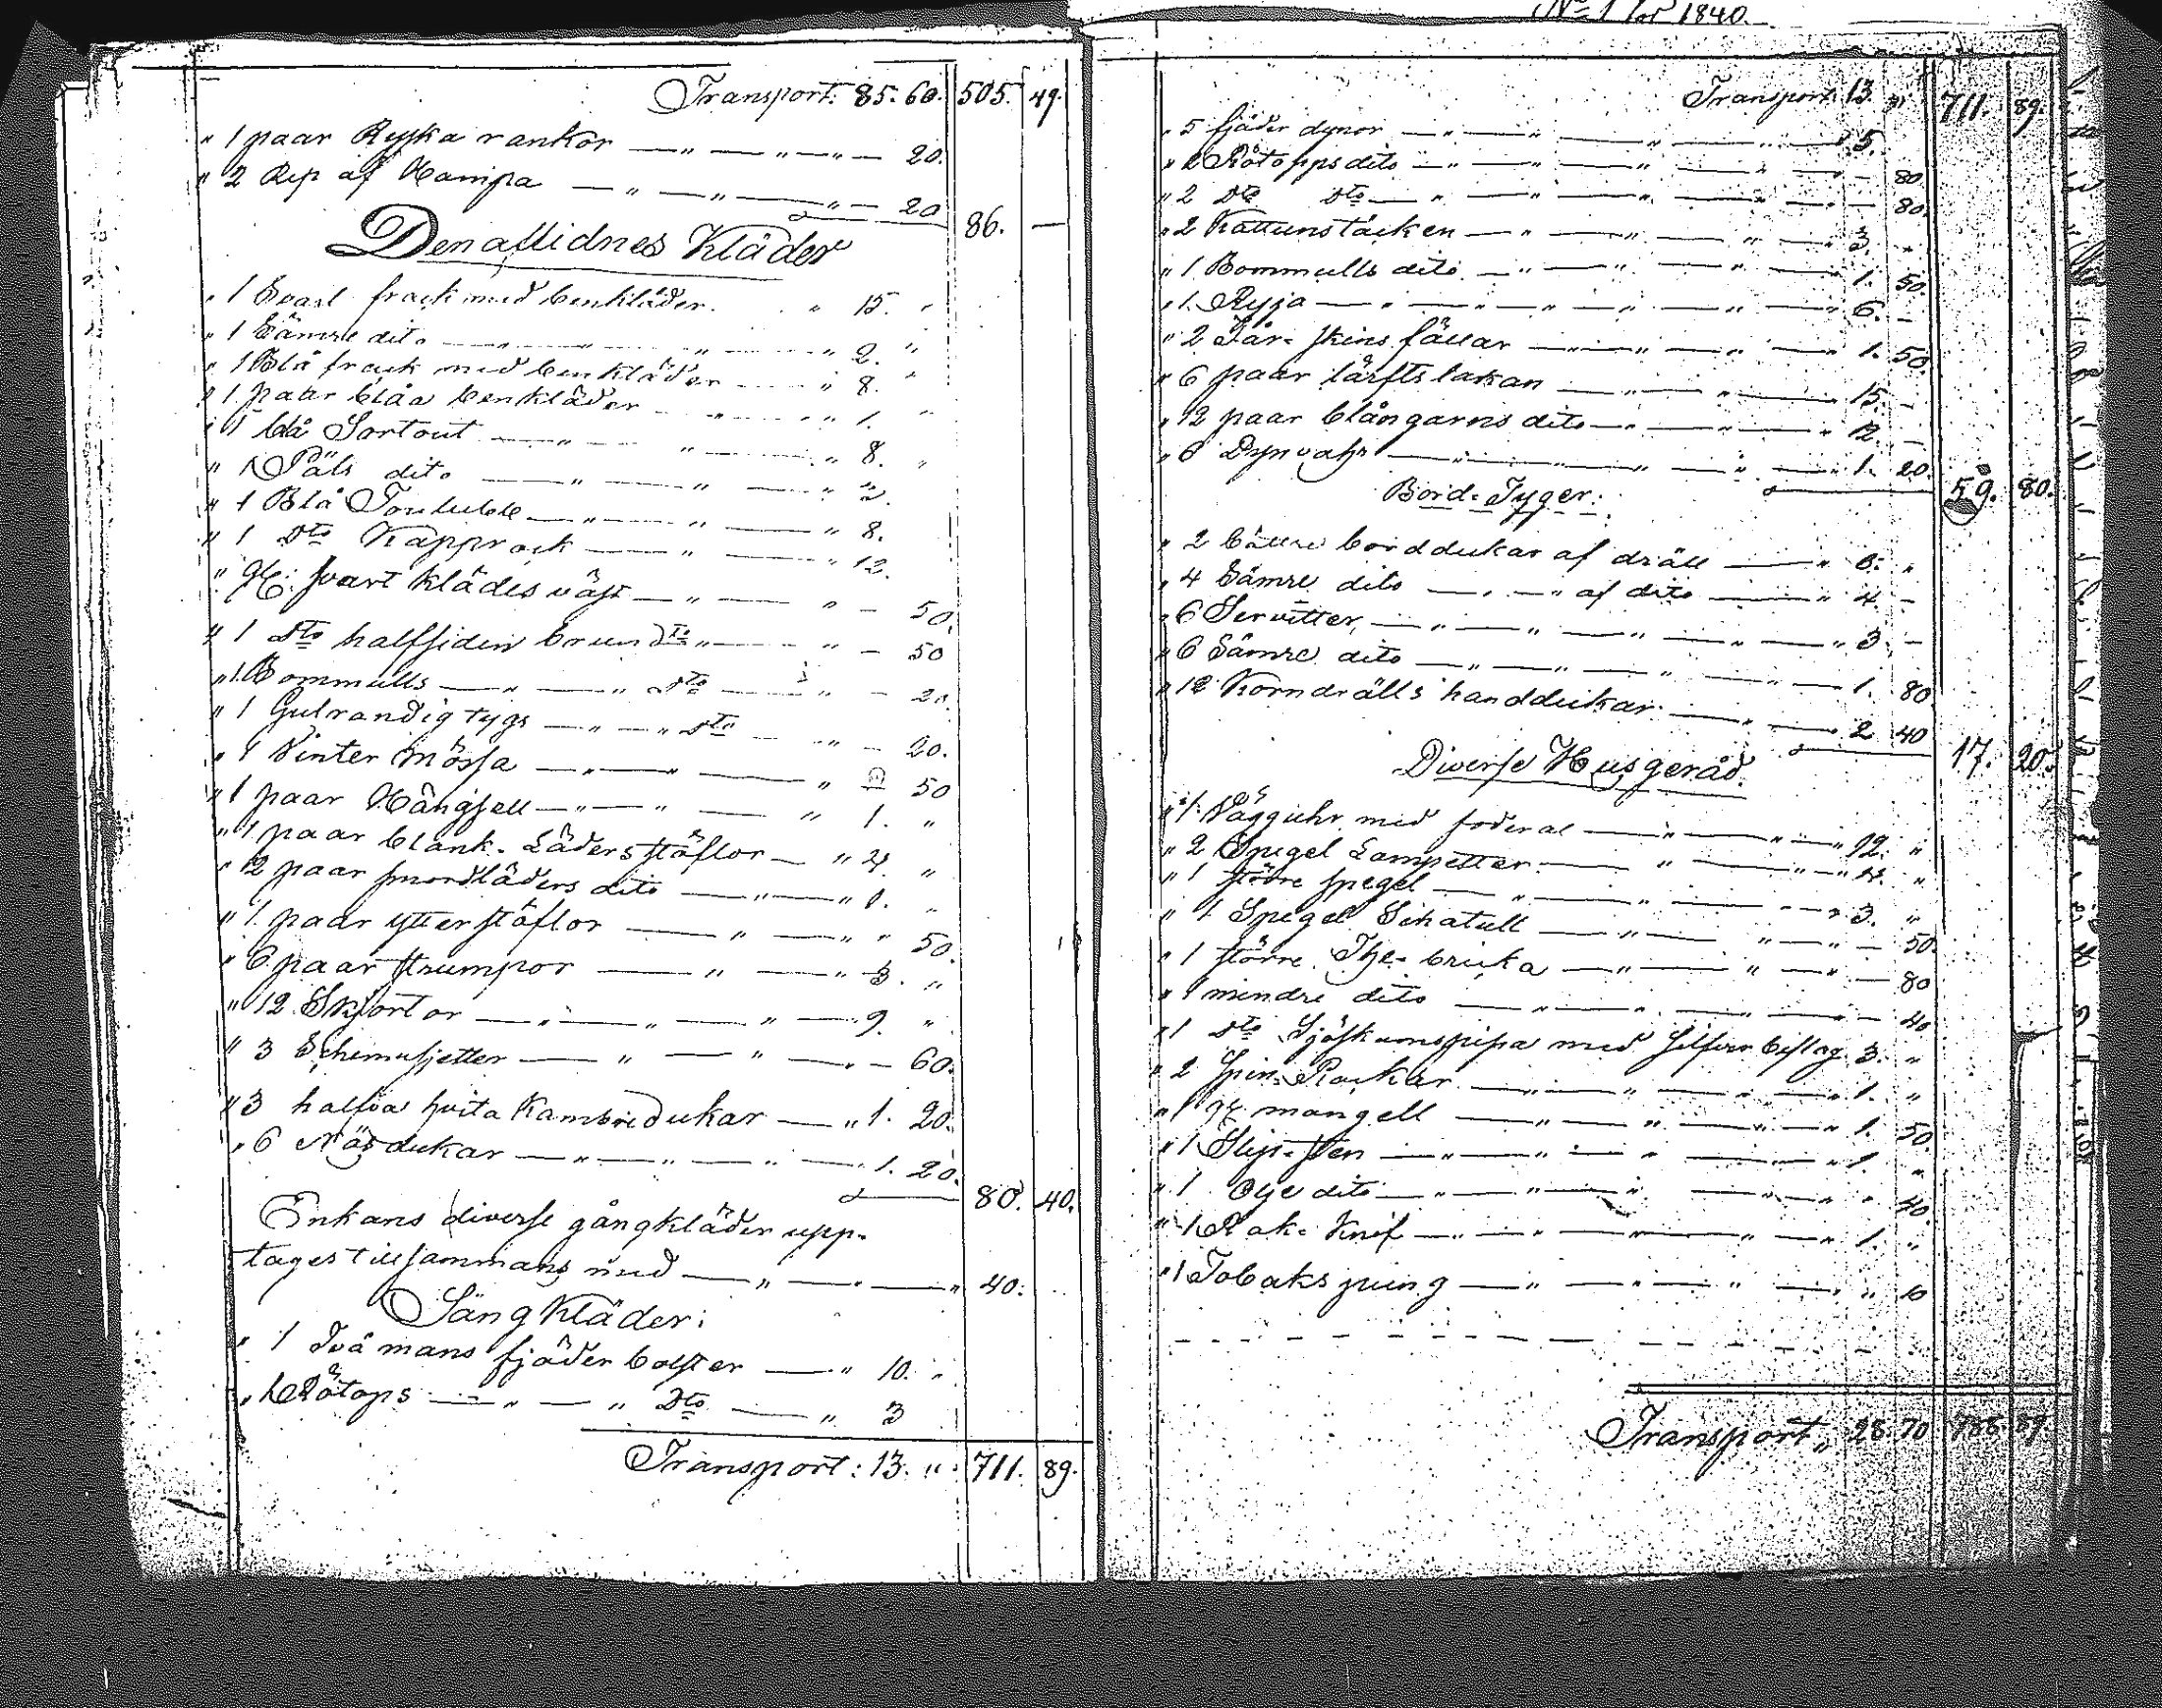 Transport: 85. 60. 505. 49.
" 1 paar Ryska rankor — " — " — " — 20.
" 2 Rep af Hampa — " — " — " — 20 86. —
Den aflidnes Kläder
" 1 Svart frack med benkläder. " 15. "
" 1 Sämre dito — " — " — " 2. "
" 1 Blå frack med benkläder — " 8. "
" 1 paar blåa benkläder — " — " 1. "
" 1 blå Sortout — " — " — " 8. "
" 1 Päls dito — " — " — " 2.
" 1 Blå — " — " — " 8.
" 1 Dto Kapprock — " — " 12.
" svart klädes väst — " — " — 50.
" 1 Dto halfsiden brun Dto " — " — 50
" 1 Bommulls — " — " Dto — " — 20
" 1 Gulrandig tygs — " — " Dto — " — 20.
" 1 Vinter mössa — " — " — " 50
" 1 paar Hängsell — " — " — " 1. "
" 1 paar blank-Läders stöflor — " 4. "
" 2 paar smordläders dito — " — " "
" 1 paar ytterstöflor — " — " " 50.
" 6 paar strumpor — " — " 3. "
" 12 Skjortor — " — " — " — 9. "
" 3 Schemisjetter — " — " — " — 60.
" 3 halfva hvita Kambridukar — " 1. 20.
" 6 Näsdukar — " — " — " — 1. 20.
80. 40.
Enkans diverse gångkläder upp-
tages tillsammans med — " — " — " 40.
Sängkläder:
" 1 Två mans fjäder bolster — " 10. "
" 1 Rötops — " — " Dto — " 3
Transport: 13. " 711. 89.
No 1 för 1840.
Transport: 13. " 711. 89.
" 5 fjäder dynor — " — " — " — " 5.
" 2 Rötopps dito — " — " — " — " — 80
" 2 Dto Dto — " — " — " — " — 80.
" 2 Kattunstäcken — " — " — " — " 3. "
" 1 Bommulls dito — " — " — " — 1. 50.
" 1 Ryja — " — " — " — " — " 6. —
" 2 Får-skins fällar — " — " — " — " 1. 50.
" 6 paar lärfts lakan — " — " — " 15. —
" 12 paar blångarns dito — " — " — " 12. —
" 6 Dynvahr — " — " — " — " 1. 20
59. 80.
Bord-Tyger:
" 2 bättre borddukar af dräll — " 6. "
" 4 Sämre dito — " — " af dito — " 4. —
" 6 Servetter, — " — " — " — " 3. —
" 6 Sämre dito — " — " — " — 1. 80
" 12 Korndrälls handdukar — " — 2 40
17. 20.
Diverse Husgeråd.
" 1 Vägguhr med foderal — " — " — " 12. "
" 2 Spegel Lampetter — " — " — " 4. "
" 1 större spegel — " — " — " 3. "
" 1 Spegel Schatull — " — " — " — 50.
" 1 större The-bricka — " — " — " — 80
" 1 mindre dito — " — " — " — 40
" 1 Dto Sjöskumspipa med silfver beslag. 3. "
" 2 Spin-Rockar — " — " — " — " 1. "
" 1 mangell — " — " — " — " 1. 50
" 1 Slip-sten — " — " — " — " 1. "
" 1 Olje dito — " — " — " — " 40.
" 1 Rak-Knif — " — " — " — " 1. "
" 1 Tobaks pung — " — " — " — " " 10
Transport " 28. 70 788. 89.